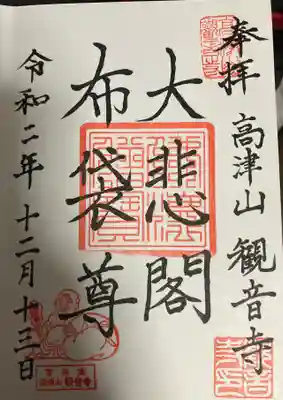 奉拝
高津山 観音寺
大悲閣
布袋尊
令和二年 十二月十三日